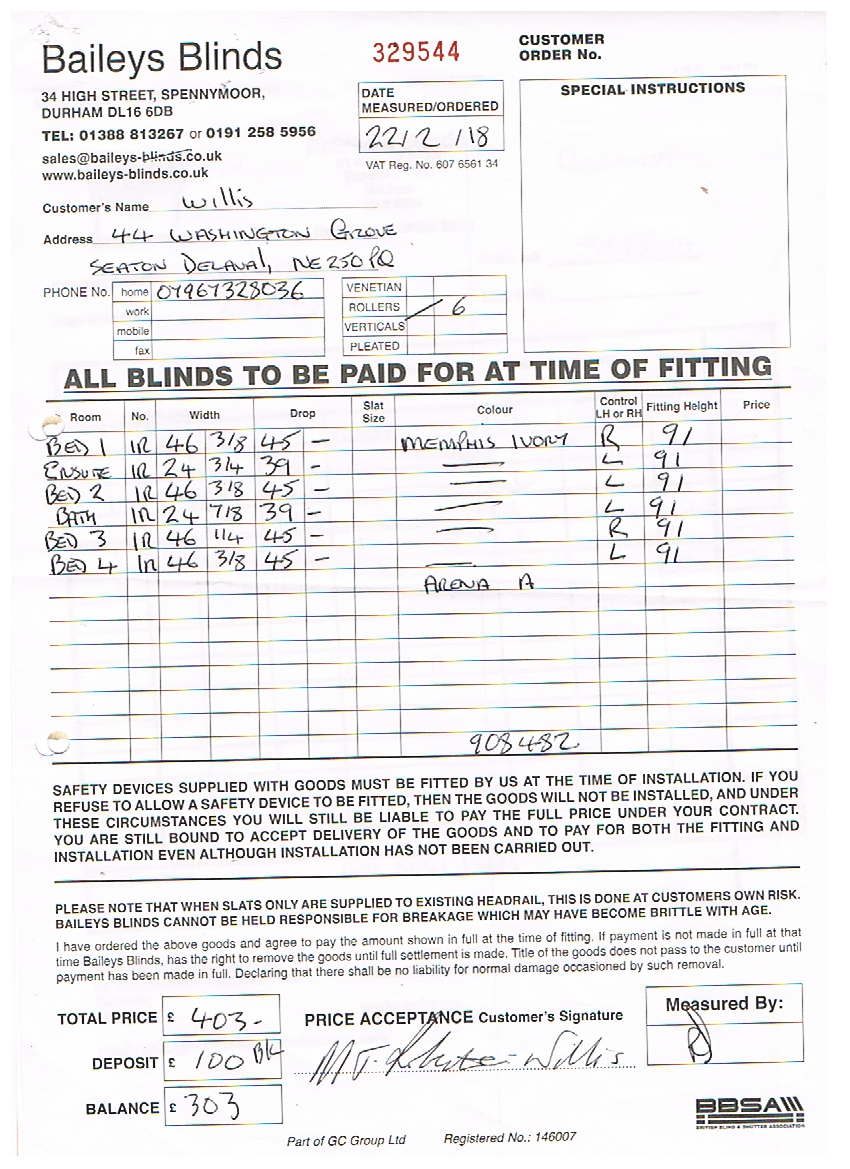 Baileys Blinds
329544
CUSTOMER
ORDER No.
34 HIGH STREET, SPENNYMOOR,
DURHAM DL16 6DB
TEL: 01388 813267 or 0191 258 5956
sales@baileys-blinds.co.uk
www.baileys-blinds.co.uk
DATE
MEASURED/ORDERED
22/2/18
VAT Reg. No. 607 6561 34
SPECIAL INSTRUCTIONS
Customer's Name Willis
Address 44 WASHINGTON GROVE
SEATON DELAVAL, NE250PQ
PHONE No. home 07967328036
work
mobile
fax
VENETIAN
ROLLERS / 6
VERTICALS
PLEATED
ALL BLINDS TO BE PAID FOR AT TIME OF FITTING
Room No. Width Drop Slat Size Colour Control LH or RH Fitting Height Price
BED 1 1R 46 3/8 45 - MEMPHIS IVORY R 91
ENSUTE 1R 24 3/4 39 - — L 91
BED 2 1R 46 3/8 45 - — L 91
BATH 1R 24 7/8 39 - — L 91
BED 3 1R 46 1/4 45 - — R 91
BED 4 1R 46 3/8 45 - — L 91
ARENA A
908482
SAFETY DEVICES SUPPLIED WITH GOODS MUST BE FITTED BY US AT THE TIME OF INSTALLATION. IF YOU
REFUSE TO ALLOW A SAFETY DEVICE TO BE FITTED, THEN THE GOODS WILL NOT BE INSTALLED, AND UNDER
THESE CIRCUMSTANCES YOU WILL STILL BE LIABLE TO PAY THE FULL PRICE UNDER YOUR CONTRACT.
YOU ARE STILL BOUND TO ACCEPT DELIVERY OF THE GOODS AND TO PAY FOR BOTH THE FITTING AND
INSTALLATION EVEN ALTHOUGH INSTALLATION HAS NOT BEEN CARRIED OUT.
PLEASE NOTE THAT WHEN SLATS ONLY ARE SUPPLIED TO EXISTING HEADRAIL, THIS IS DONE AT CUSTOMERS OWN RISK.
BAILEYS BLINDS CANNOT BE HELD RESPONSIBLE FOR BREAKAGE WHICH MAY HAVE BECOME BRITTLE WITH AGE.
I have ordered the above goods and agree to pay the amount shown in full at the time of fitting. If payment is not made in full at that
time Baileys Blinds, has the right to remove the goods until full settlement is made. Title of the goods does not pass to the customer until
payment has been made in full. Declaring that there shall be no liability for normal damage occasioned by such removal.
TOTAL PRICE £ 403-
PRICE ACCEPTANCE Customer's Signature
Measured By:
DEPOSIT £ 100 BK
Robertson-Willis
BALANCE £ 303
BBSA
BRITISH BLIND & SHUTTER ASSOCIATION
Part of GC Group Ltd Registered No.: 146007